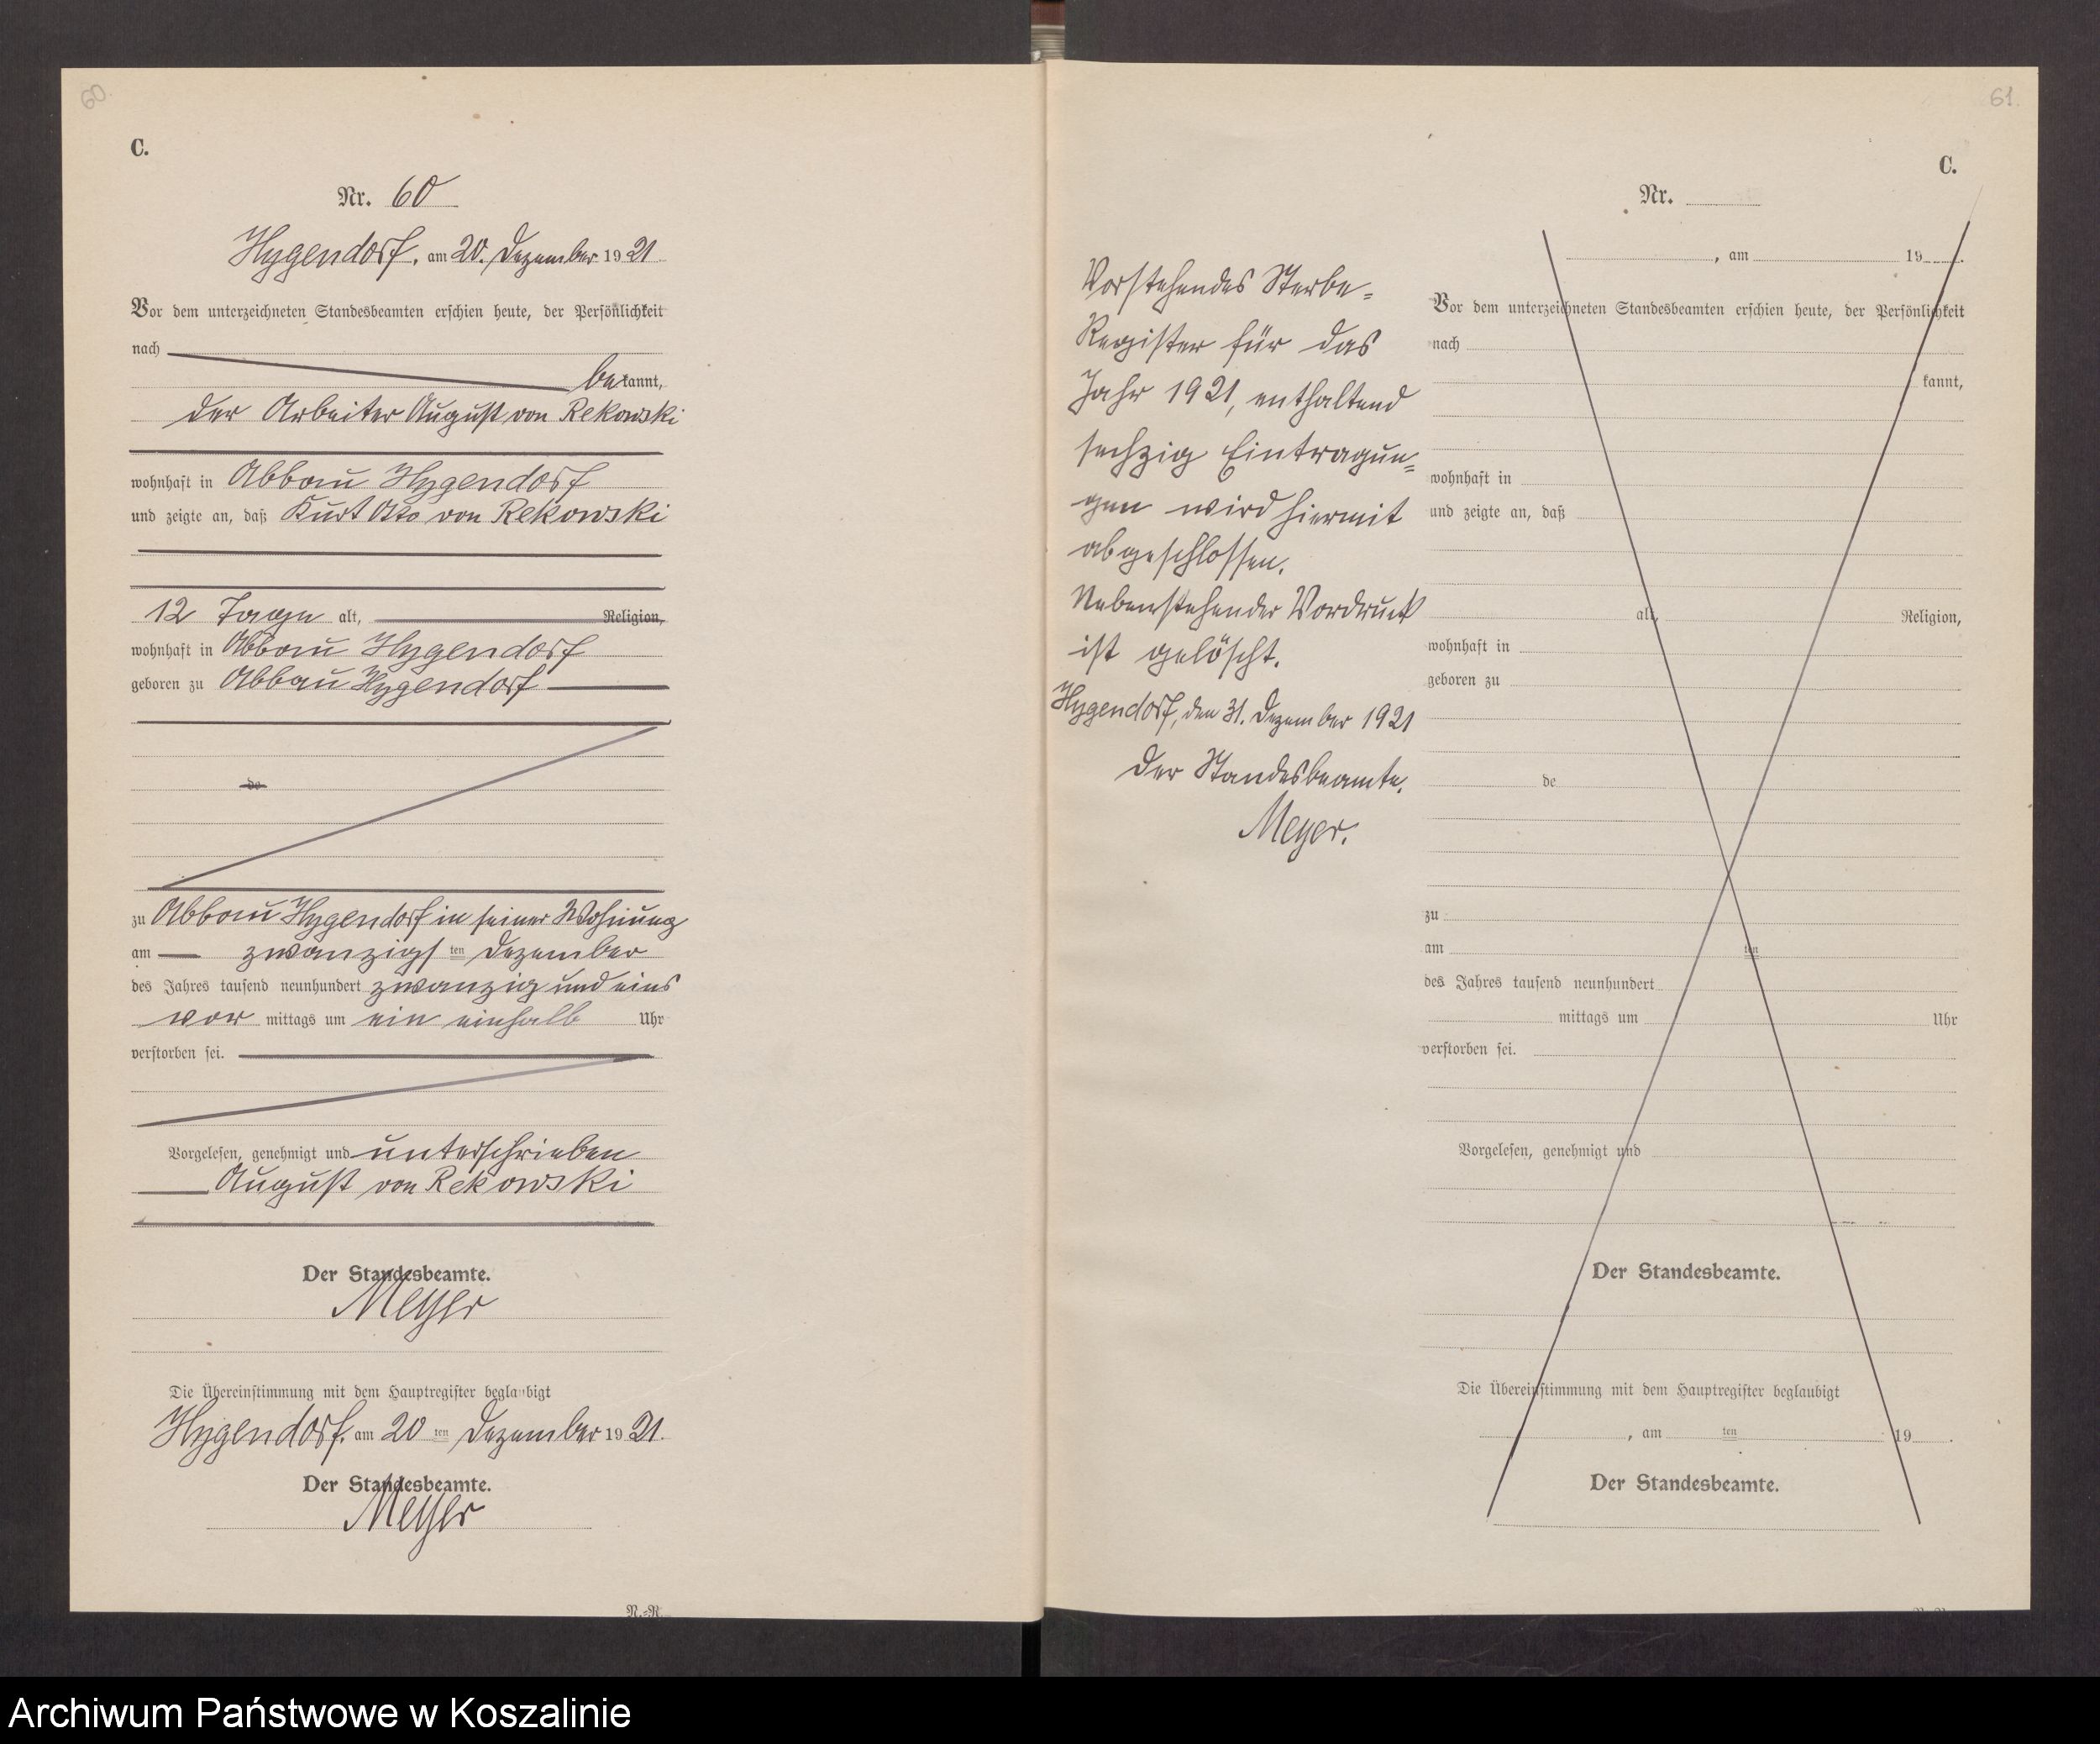 60.
C.
Nr. 60
Hygendorf, am 20. Dezember 1921
Vor dem unterzeichneten Standesbeamten erschien heute, der Persönlichkeit
nach
bekannt,
der Arbeiter August von Rekowski
wohnhaft in Abbau Hygendorf
und zeigte an, daß Kurt Otto von Rekowski
12 Tage alt, Religion,
wohnhaft in Abbau Hygendorf
geboren zu Abbau Hygendorf
de
zu Abbau Hygendorf in seiner Wohnung
am zwanzigsten Dezember
des Jahres tausend neunhundert zwanzig und eins
vor mittags um ein einhalb Uhr
verstorben sei.
Vorgelesen, genehmigt und unterschrieben
August von Rekowski
Der Standesbeamte.
Meyer
Die Übereinstimmung mit dem Hauptregister beglaubigt
Hygendorf, am 20 ten Dezember 1921.
Der Standesbeamte.
Meyer
N.-R.
61.
C.
Vorstehendes Sterbe-
Register für das
Jahr 1921, enthaltend
sechzig Eintragun-
gen wird hiermit
abgeschlossen.
Nebenstehender Vordruck
ist gelöscht.
Hygendorf, den 31. Dezember 1921
Der Standesbeamte.
Meyer.
Nr.
, am 19 .
Vor dem unterzeichneten Standesbeamten erschien heute, der Persönlichkeit
nach
kannt,
wohnhaft in
und zeigte an, daß
alt, Religion,
wohnhaft in
geboren zu
de
zu
am ten
des Jahres tausend neunhundert
mittags um Uhr
verstorben sei.
Vorgelesen, genehmigt und
Der Standesbeamte.
Die Übereinstimmung mit dem Hauptregister beglaubigt
, am ten 19 .
Der Standesbeamte.
Archiwum Państwowe w Koszalinie